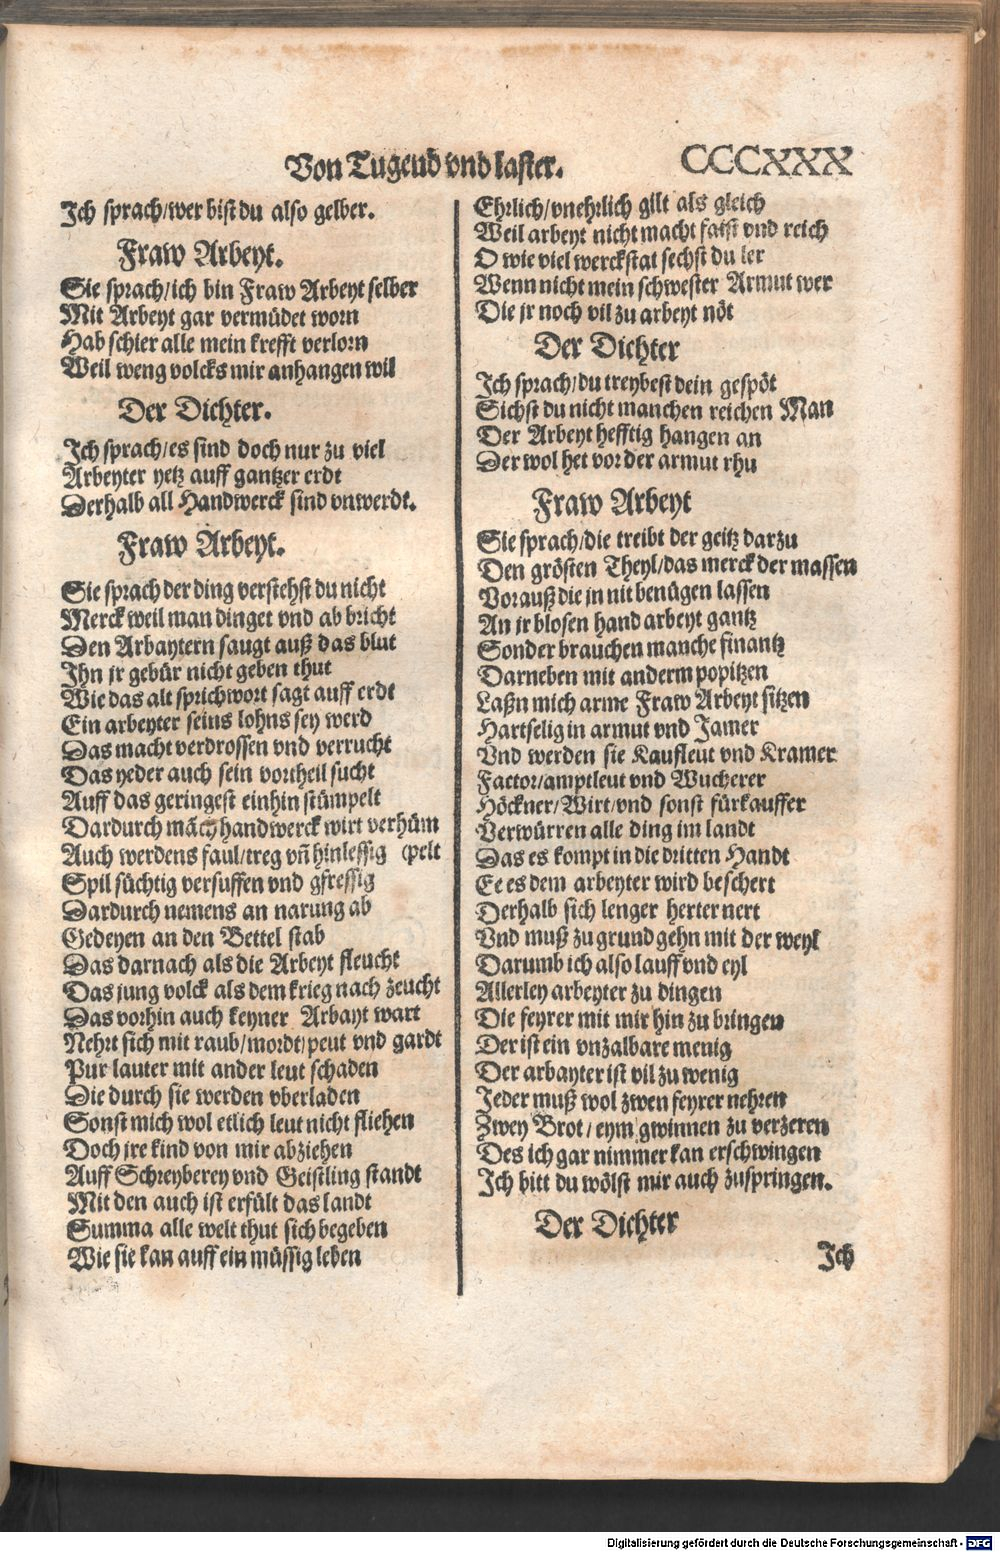 Von Tugend vnd laster.
CCCXXX
Ich sprach/wer bist du also gelber.
Fraw Arbeyt.
Sie sprach/ich bin Fraw Arbeyt selber
Mit Arbeyt gar vermüdet worn
Hab schier alle mein krefft verlorn
Weil weng volcks mir anhangen wil
Der Dichter.
Ich sprach/es sind doch nur zu viel
Arbeyter yetz auff gantzer erdt
Derhalb all Handwerck sind vnwerdt.
Fraw Arbeyt.
Sie sprach der ding verstehst du nicht
Merck weil man dinget vnd ab bricht
Den Arbaytern saugt auß das blut
Ihn jr gebür nicht geben thut
Wie das alt sprichwort sagt auff erdt
Ein arbeyter seins lohns sey werd
Das macht verdrossen vnd verrucht
Das yeder auch sein vortheil sucht
Auff das geringest einhin stümpelt
Dardurch mãch handwerck wirt verhüm
Auch werdens faul/treg vñ hinlessig (pelt
Spil süchtig versuffen vnd gfressig
Dardurch nemens an narung ab
Gedeyen an den Bettel stab
Das darnach als die Arbeyt fleucht
Das jung volck als dem krieg nach zeucht
Das vorhin auch keyner Arbayt wart
Nehrt sich mit raub/mordt/peut vnd gardt
Pur lauter mit ander leut schaden
Die durch sie werden vberladen
Sonst mich wol etlich leut nicht fliehen
Doch jre kind von mir abziehen
Auff Schreyberey vnd Geistling standt
Mit den auch ist erfült das landt
Summa alle welt thut sich begeben
Wie sie kan auff ein müssig leben
Ehrlich/vnehrlich gilt als gleich
Weil arbeyt nicht macht faist vnd reich
O wie viel werckstat sechst du ler
Wenn nicht mein schwester Armut wer
Die jr noch vil zu arbeyt nöt
Der Dichter
Ich sprach/du treybest dein gespöt
Sichst du nicht manchen reichen Man
Der Arbeyt hefftig hangen an
Der wol het vor der armut rhu
Fraw Arbeyt
Sie sprach/die treibt der geitz darzu
Den grösten Theyl/das merck der massen
Vorauß die jn nit benügen lassen
An jr blosen hand arbeyt gantz
Sonder brauchen manche finantz
Darneben mit anderm popitzen
Laßn mich arme Fraw Arbeyt sitzen
Hartselig in armut vnd Jamer
Vnd werden sie Kaufleut vnd Kramer
Factor/amptleut vnd Wucherer
Höckner/Wirt/vnd sonst fürkauffer
Verwürren alle ding im landt
Das es kompt in die dritten Handt
Ee es dem arbeyter wird beschert
Derhalb sich lenger herter nert
Vnd muß zu grund gehn mit der weyl
Darumb ich also lauff vnd eyl
Allerley arbeyter zu dingen
Die feyrer mit mir hin zu bringen
Der ist ein vnzalbare menig
Der arbayter ist vil zu wenig
Jeder muß wol zwen feyrer nehren
Zwey Brot/eym gwinnen zu verzeren
Des ich gar nimmer kan erschwingen
Ich bitt du wölst mir auch zuspringen.
Der Dichter
Ich
Digitalisierung gefördert durch die Deutsche Forschungsgemeinschaft - DFG